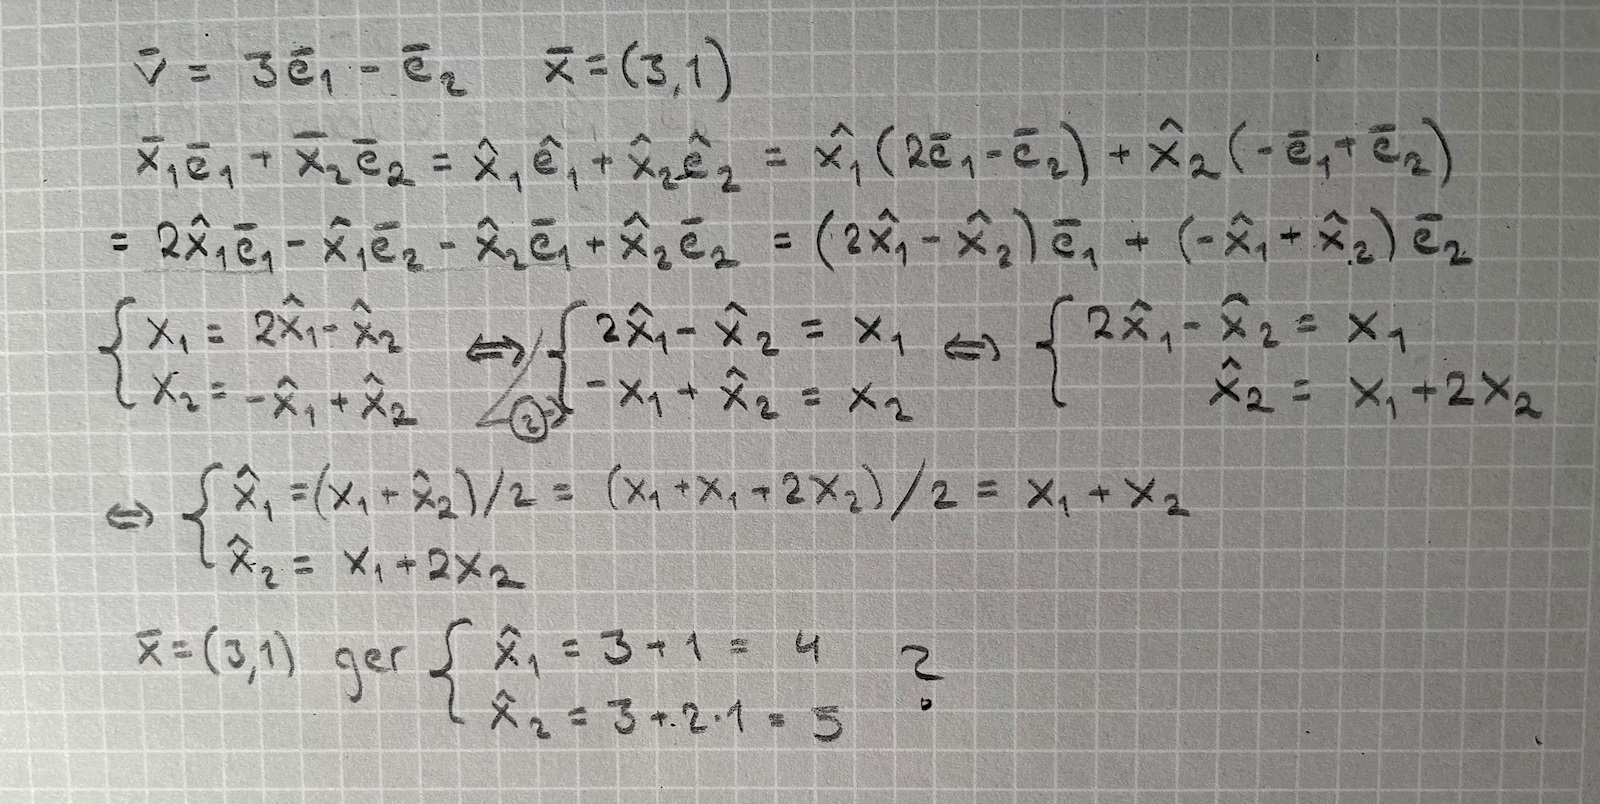 v̄ = 3ē₁ - ē₂ x̄ = (3,1)
x̄₁ē₁ + x̄₂ē₂ = x̂₁ê₁ + x̂₂ê₂ = x̂₁(2ē₁ - ē₂) + x̂₂(-ē₁ + ē₂)
= 2x̂₁ē₁ - x̂₁ē₂ - x̂₂ē₁ + x̂₂ē₂ = (2x̂₁ - x̂₂)ē₁ + (-x̂₁ + x̂₂)ē₂
{ x₁ = 2x̂₁ - x̂₂ ⇔ { 2x̂₁ - x̂₂ = x₁ ⇔ { 2x̂₁ - x̂₂ = x₁
x₂ = -x̂₁ + x̂₂ ② -x₁ + x̂₂ = x₂ x̂₂ = x₁ + 2x₂
⇔ { x̂₁ = (x₁ + x̂₂)/2 = (x₁ + x₁ + 2x₂)/2 = x₁ + x₂
x̂₂ = x₁ + 2x₂
x̄ = (3,1) ger { x̂₁ = 3 + 1 = 4 ?
x̂₂ = 3 + 2·1 = 5